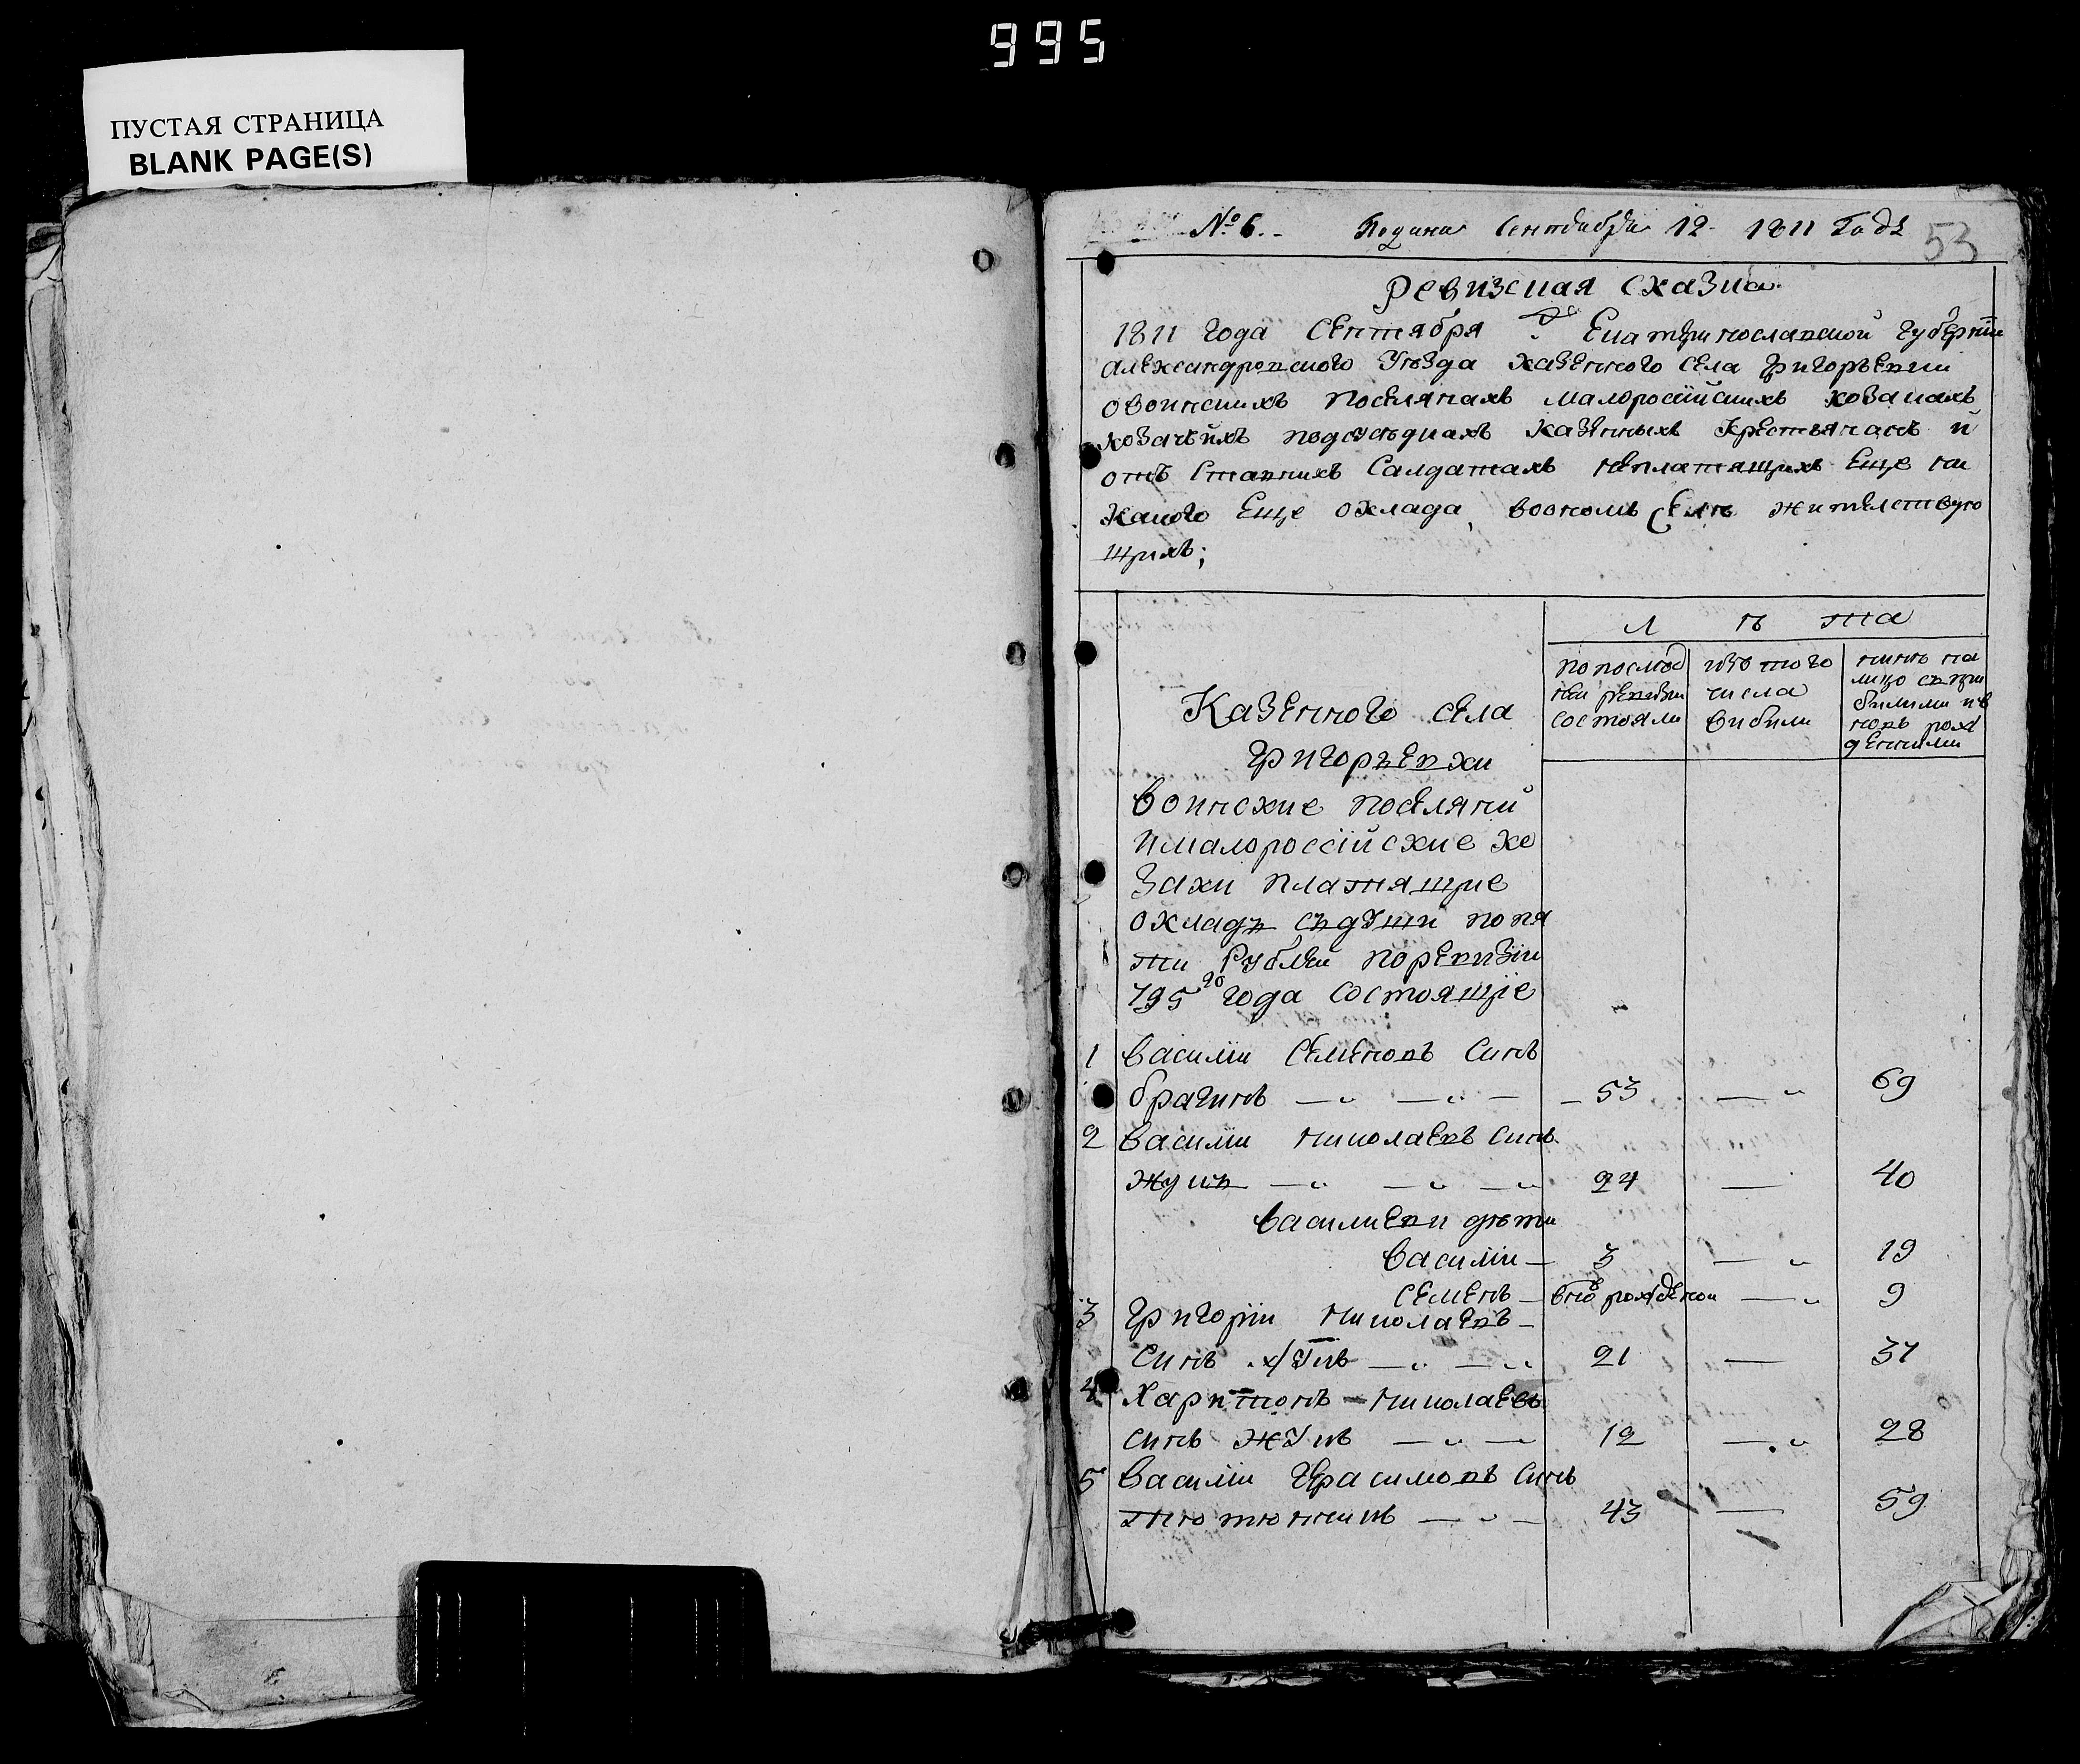 995
ПУСТАЯ СТРАНИЦА
BLANK PAGE(S)
№ 6. Подана Сентября 12 1811 Года
53
Ревизская сказка
1811 года Сентября Екатеринославской губернїи
Александровского Уѣзда казенного села Григорьевки
овоинскихъ поселянахъ малоросїйскихъ козакахъ
козачьихъ подсусѣдкахъ казенныхъ Крестьянахъ и
отъ Ставнихъ Салдатахъ неплатящихъ Еще ни
какого Еще оклада, воономъ Селѣ жителствую
щихъ;
Л ѣ та
По послѣд
ней ревизіи
состояли
изъ того
числа
выбыли
нинѣ на
лицо съ при
былими и въ
новъ рож
денними
Казенного села
Григорьевки
Воинские поселяни
ималороссїйские ко
заки платящие
окладъ съдуши попя
ти Рублей поревизїи
795го года состоящїе
1 Василїи Семеновъ Синъ
брагинъ 53 69
2 Василїи Николаевъ Синъ
жукъ 24 40
Василиеви дѣти
Василїи 3 19
Семенъ вно рожденои 9
3 Григорїи Николаевъ
Синъ жукъ 21 37
4 Харитонъ Николаевъ
Синъ жукъ 12 28
5 Василїи Герасимовъ Синъ
тютюнникъ 43 59